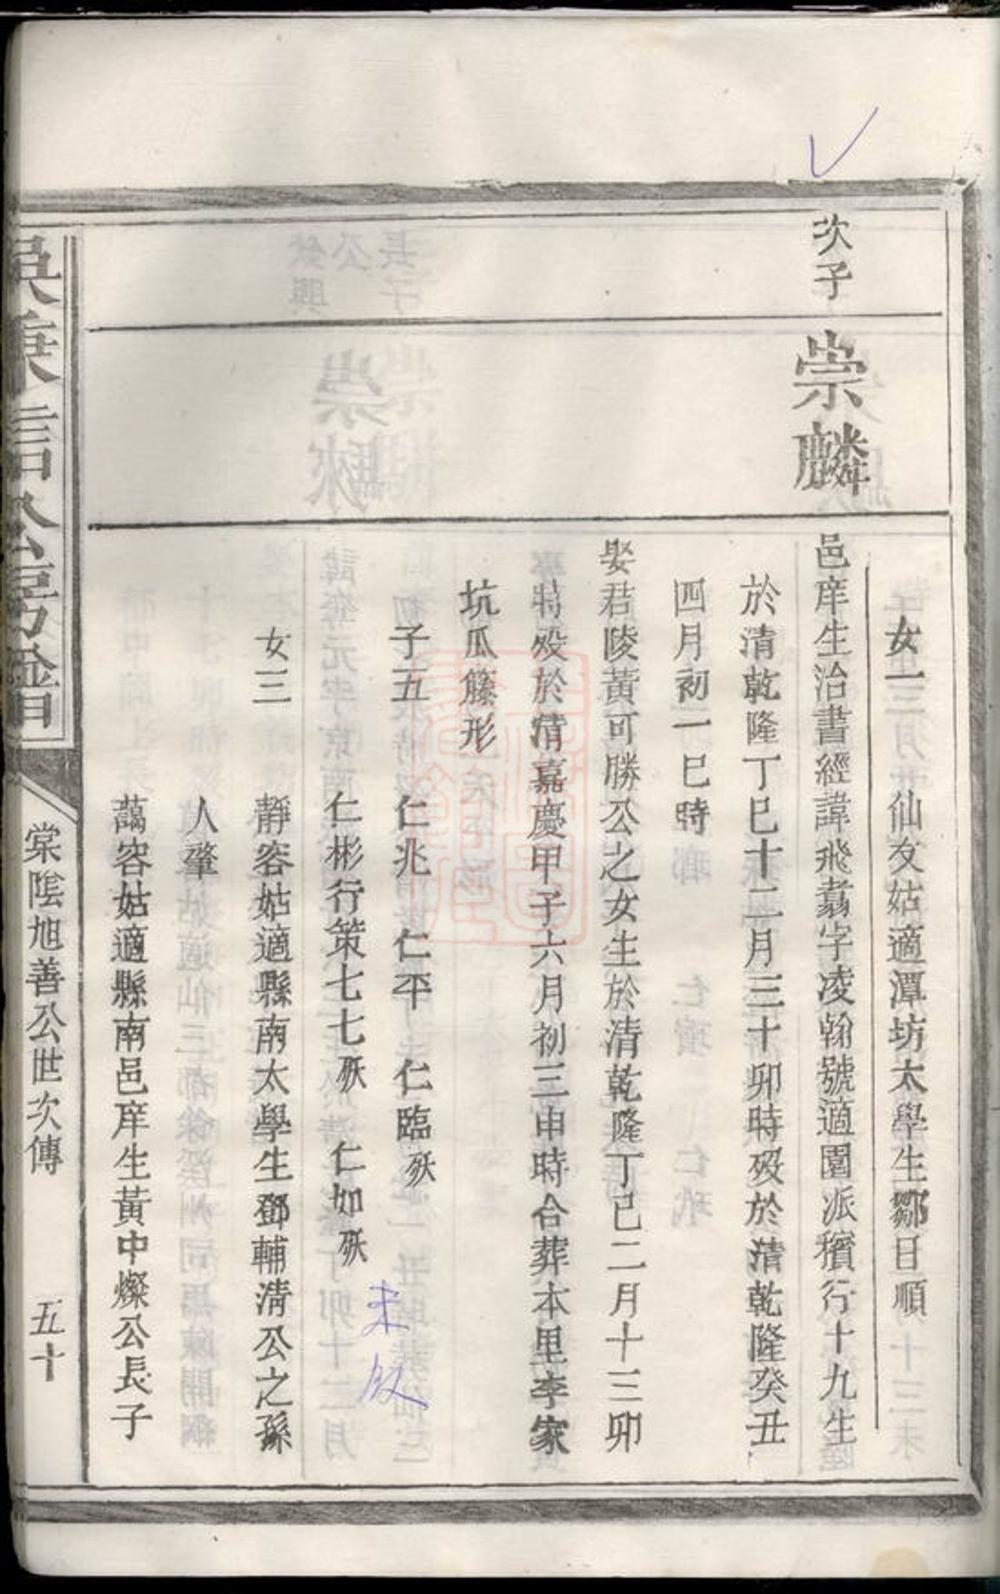 女一　仙友姑適潭坊太學生鄒日順
次子
崇麟
邑庠生治書經諱飛翥字凌翰號適園派穧行十九生
於清乾隆丁巳十二月三十卯時歿於清乾隆癸丑
四月初一巳時
娶君陵黃可勝公之女生於清乾隆丁巳二月十三卯
時歿於清嘉慶甲子六月初三申時合葬本里李家
坑瓜籐形
子五　仁兆　仁平　仁臨殀
仁彬行策七七殀　仁如殀
未
女三　靜容姑適縣南太學生鄧輔清公之孫
人肇
藹容姑適縣南邑庠生黃中燦公長子
吳乘信公房譜
棠陰旭善公世次傳　五十